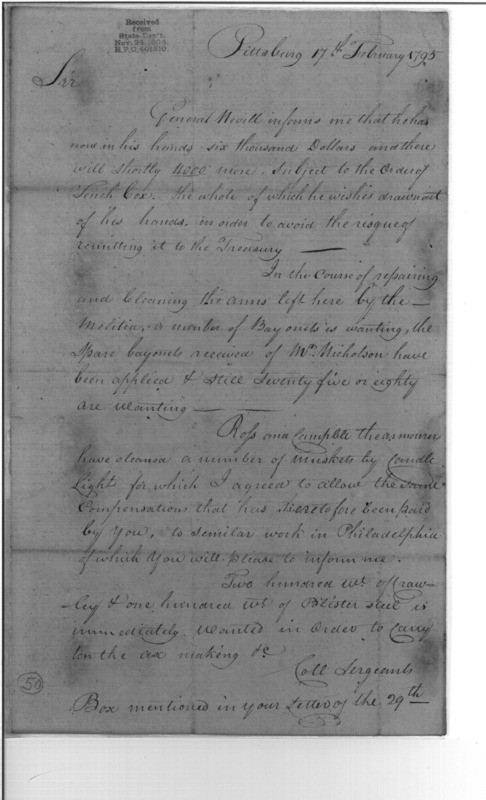 Received
from
State Dept.
Nov. 25, 1904
R.P.O. 461810.
Pittsburg 17th February 1795
Sir
General Nevill informs me that he has
now in his hands six thousand Dollars and there
will shortly 4000 more. Subject to the Order of
Tench Cox. the whole of which he wishes drawn out
of his hands. in order to avoid the risque of
remitting it to the Treasury
In the Course of repairing
and Cleaning the arms left here by the
Melitia, a number of Bayonets is wanting, the
Spare bayonets received of Mr. Nicholson have
been applied & still Seventy five or eighty
are wanting
Ross and Camplble the armourers
have cleansd a number of muskets by Candle
Light for which I agreed to allow the same
Compensations that has heretofore been paid
by You, to semilar work in Philadelphia
of which You will please to inform me.
Two hundred Wt. of Craw-
-ley & one hundred Wt. of Blister steel is
immediately Wanted in Order to Carry
on the ax making &c
Coll Sergeants
50
Box mentioned in your Letter of the 29th